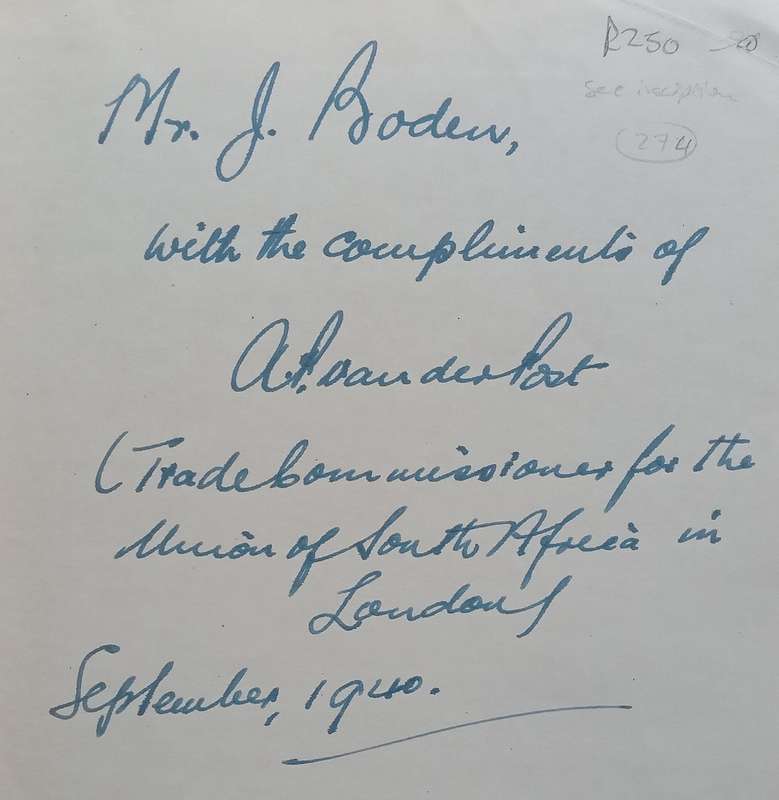 R250
see inscription
274
Mr. J. Boden,
with the compliments of
A.P. van der Post
(Trade Commissioner for the
Union of South Africa in
London)
September, 1940.